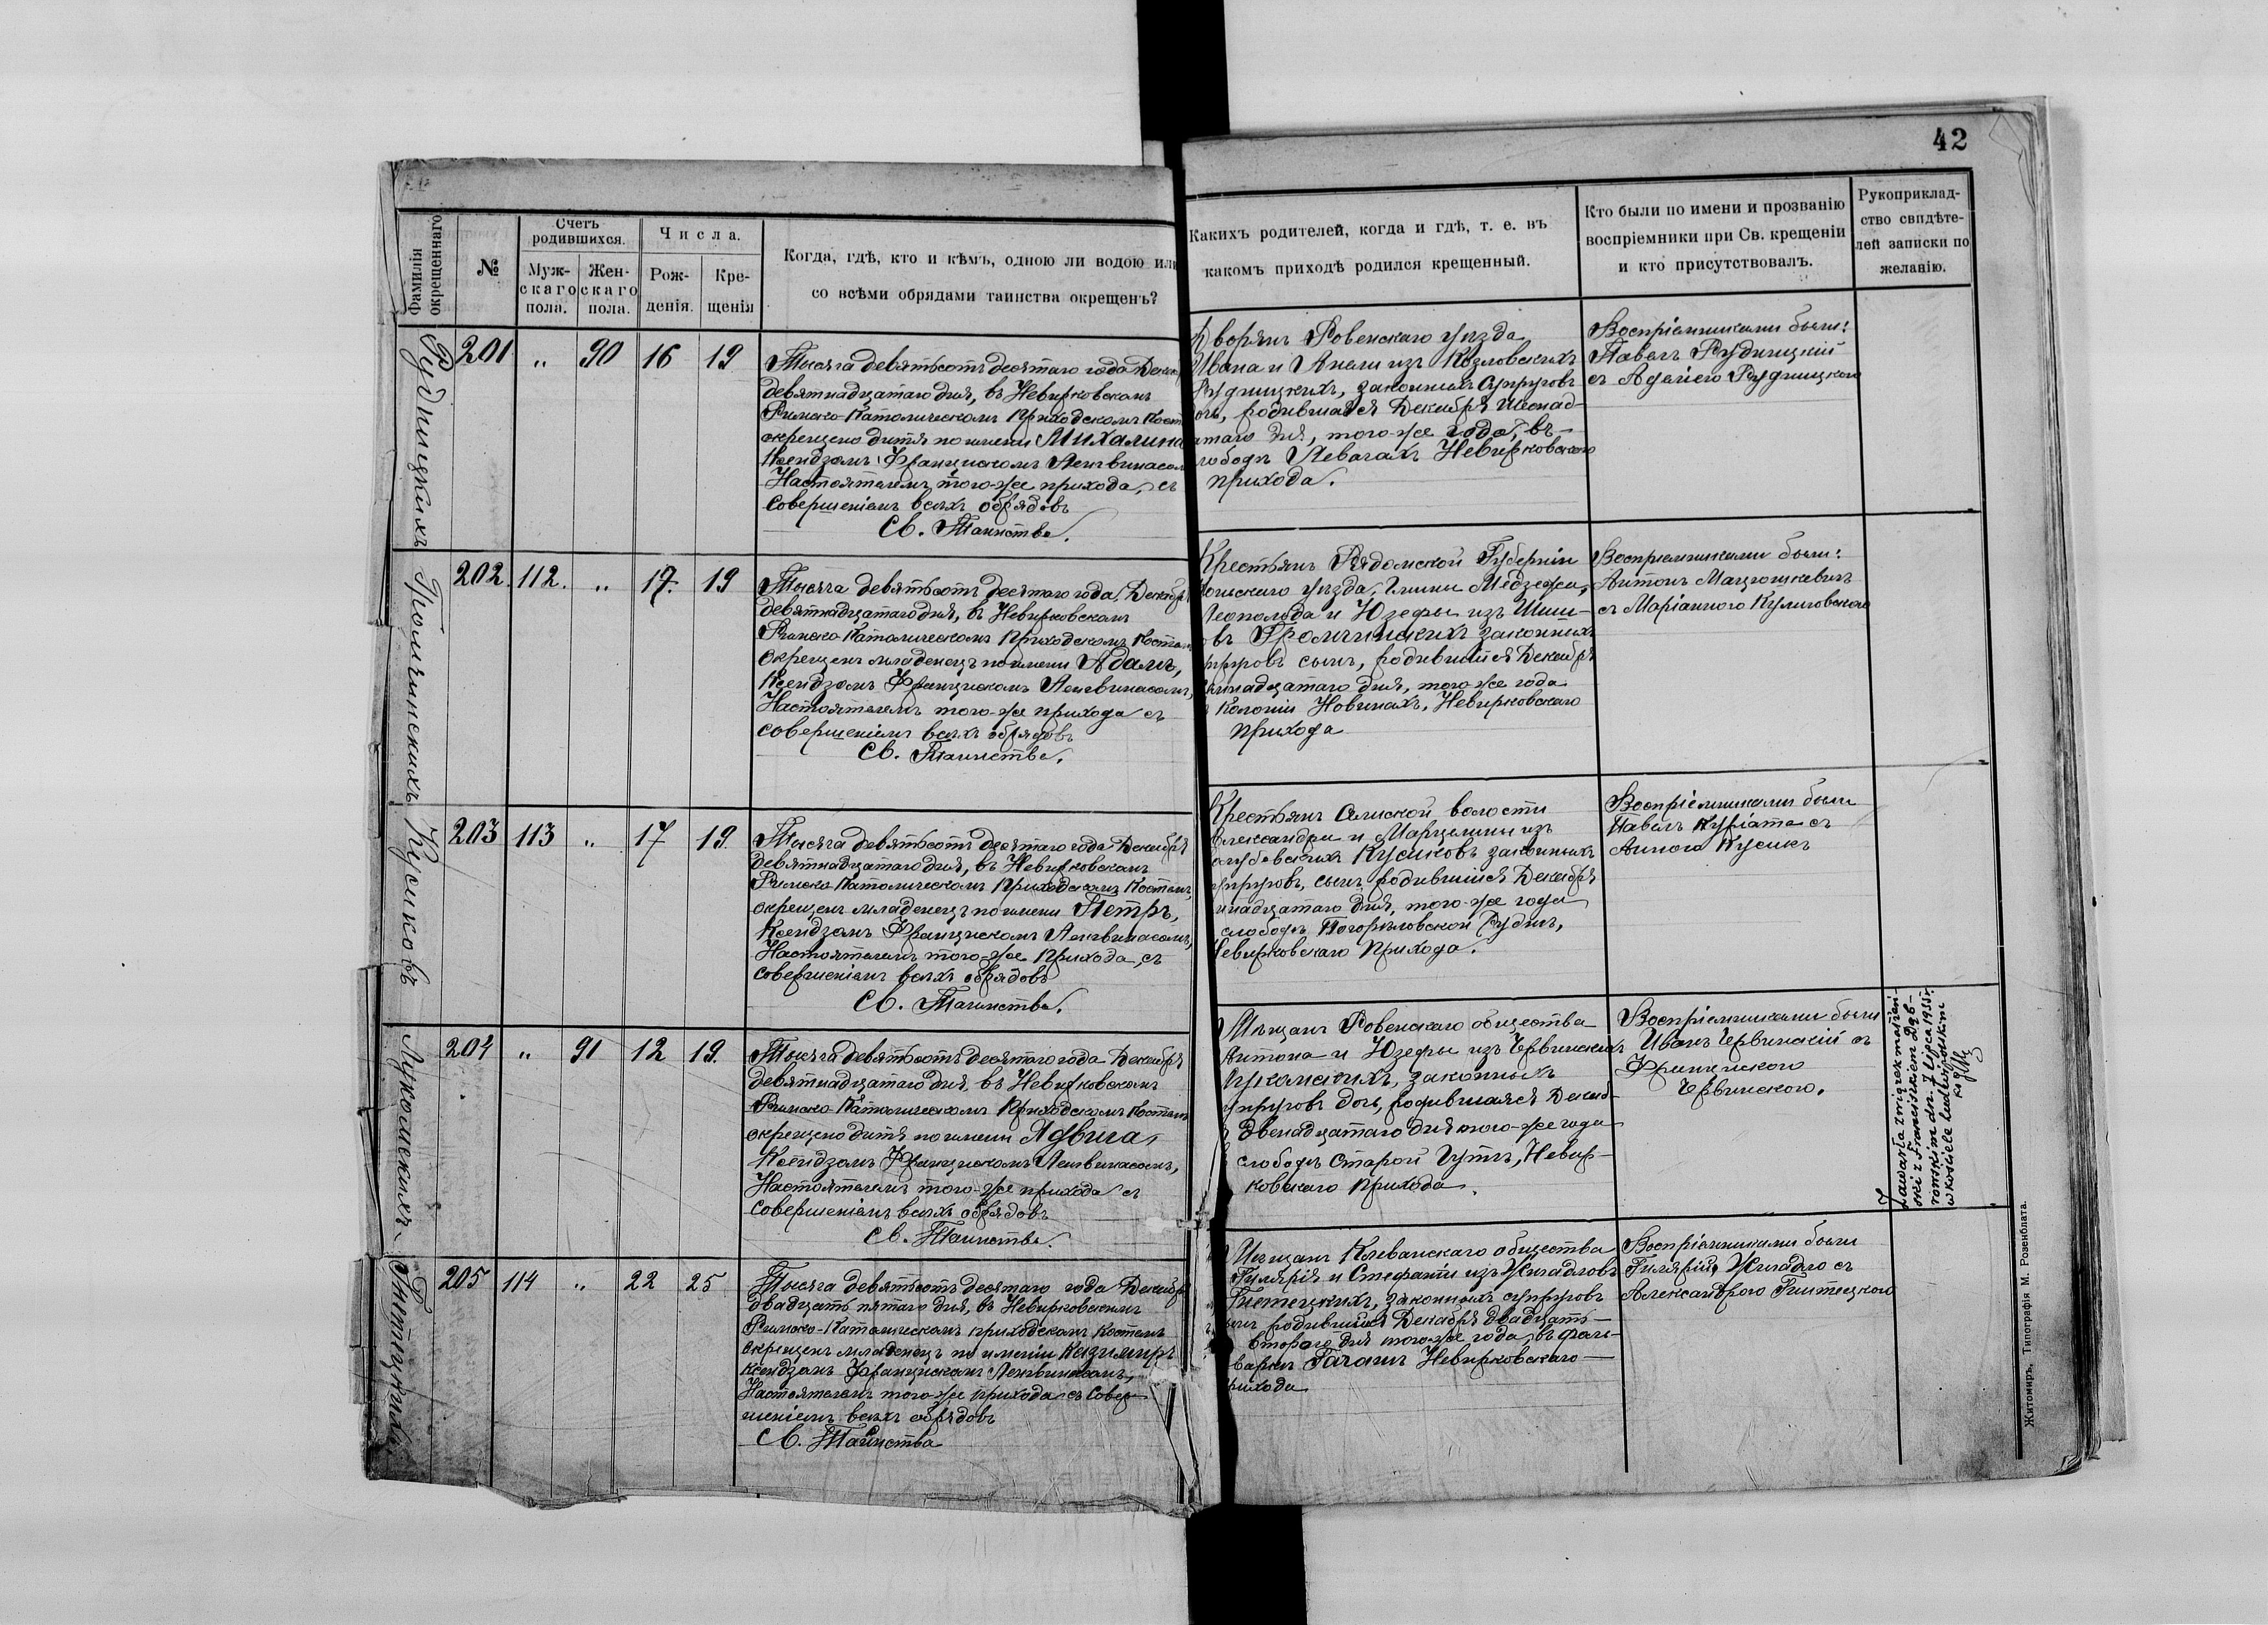 42
Фамилія окрещеннаго
№
Счетъ родившихся.
Муж-
скаго
пола.
Жен-
скаго
пола.
Числа.
Рож-
денія.
Кре-
щенія
Когда, гдѣ, кто и кѣмъ, одною ли водою или
со всѣми обрядами таинства окрещенъ?
Какихъ родителей, когда и гдѣ, т. е. въ
какомъ приходѣ родился крещенный.
Кто были по имени и прозванію
воспріемники при Св. крещеніи
и кто присутствовалъ.
Рукоприклад-
ство свидѣте-
лей записки по
желанію.
Рудницкихъ
201 „ 90 16 19
Тысяча девятьсотъ десятаго года Декаб
девятнадцатаго дня, въ Невирковскомъ
Римско-Католическомъ Приходскомъ Кост
окрещено дитя по имени Михалина
Ксендзомъ Францискомъ Ленгвинасом
Настоятелемъ того-же прихода, съ
совершеніемъ всѣхъ обрядовъ
Св. Таинства.
Дворянъ Ровенскаго уѣзда
Ивана и Анели изъ Козловскихъ
Рудницкихъ, законныхъ супруговъ
очь, родившаяся Декабря шестнад-
атаго дня, того-же года, въ
лободѣ Левачахъ Невирковскаго
прихода.
Воспріемниками были:
Павелъ Рудницкій
съ Аделіею Рудницкою
Громчинскихъ
202. 112. „ 17. 19
Тысяча девятьсотъ десятаго года, Декабр
девятнадцатаго дня, въ Невирковскомъ
Римско-Католическомъ Приходскомъ Костел
окрещенъ младенецъ по имени Адамъ,
Ксендзомъ Францискомъ Ленгвинасомъ,
Настоятелемъ того-же прихода съ
совершеніемъ всѣхъ обрядовъ
Св. Таинства.
Крестьянъ Радомской Губерніи
уѣзда, Гмины
Леополда и Юзефы изъ
въ Громчинскихъ законныхъ
упруговъ сынъ, родившійся Декабря
надцатаго дня, того-же года
Колоніи Новинахъ, Невирковскаго
прихода
Воспріемниками были:
Антонъ Мацюшкевичъ
съ Маріанною Куликовскою
Кусиковъ
203 113 „ 17 19.
Тысяча девятьсотъ десятаго года Декабря
девятнадцатаго дня, въ Невирковскомъ
Римско-Католическомъ Приходскомъ Костелѣ
окрещенъ младенецъ по имени Петръ,
Ксендзомъ Францискомъ Ленгвинасомъ,
Настоятелемъ того-же Прихода, съ
совершеніемъ всѣхъ обрядовъ
Св. Таинства.
Крестьянъ волости
лександра и Марцелины изъ
Кусиковъ законныхъ
упруговъ, сынъ, родившійся Декабря
надцатаго дня, того-же года
слободѣ Погорѣловской Рудни,
Невирковскаго Прихода.
Воспріемниками были
Павелъ съ
Анною Кусикъ
Лукомскихъ
204 „ 91 12 19.
Тысяча девятьсотъ десятаго года Декабря
девятнадцатаго дня, въ Невирковскомъ
Римско-Католическомъ Приходскомъ Костелѣ
окрещено дитя по имени Ядвига,
Ксендзомъ Францискомъ Ленгвинасомъ,
Настоятелемъ того-же прихода съ
совершеніемъ всѣхъ обрядовъ
Св. Таинства.
Мѣщанъ Ровенскаго общества
Антона и Юзефы изъ Червинскихъ
укомскихъ, законныхъ
упруговъ дочь, родившаяся Декаб-
двенадцатаго дня того-же года
слободѣ Старой Гутѣ, Невир-
ковскаго прихода.
Воспріемниками были
Иванъ Червинскій съ
Францишкою
Червинскою.
Zawarła związek małżeń-
ski z Franciszkiem
dn. 7 lipca 1935 r.
w kościele ludwipolskim
205 114 „ 22 25
Тысяча девятьсотъ десятаго года Декабр
двадцать пятаго дня, въ Невирковскомъ
Римско-Католическомъ приходскомъ Костелѣ
окрещенъ младенецъ по имени Казимиръ
ксендзомъ Францискомъ Ленгвинасомъ,
Настоятелемъ того-же прихода съ совер-
шеніемъ всѣхъ обрядовъ
Св. Таинства
Мѣщанъ Клеванскаго общества
Гилярія и Стефаніи изъ Жигадловъ
законныхъ супруговъ
ынъ родившійся Декабря двадцать-
втораго дня того-же года, въ фоль-
варкѣ Невирковскаго
рихода
Воспріемниками были
Гилярій Жигадло съ
Александрою
Житомиръ. Типографія М. Розенблата.